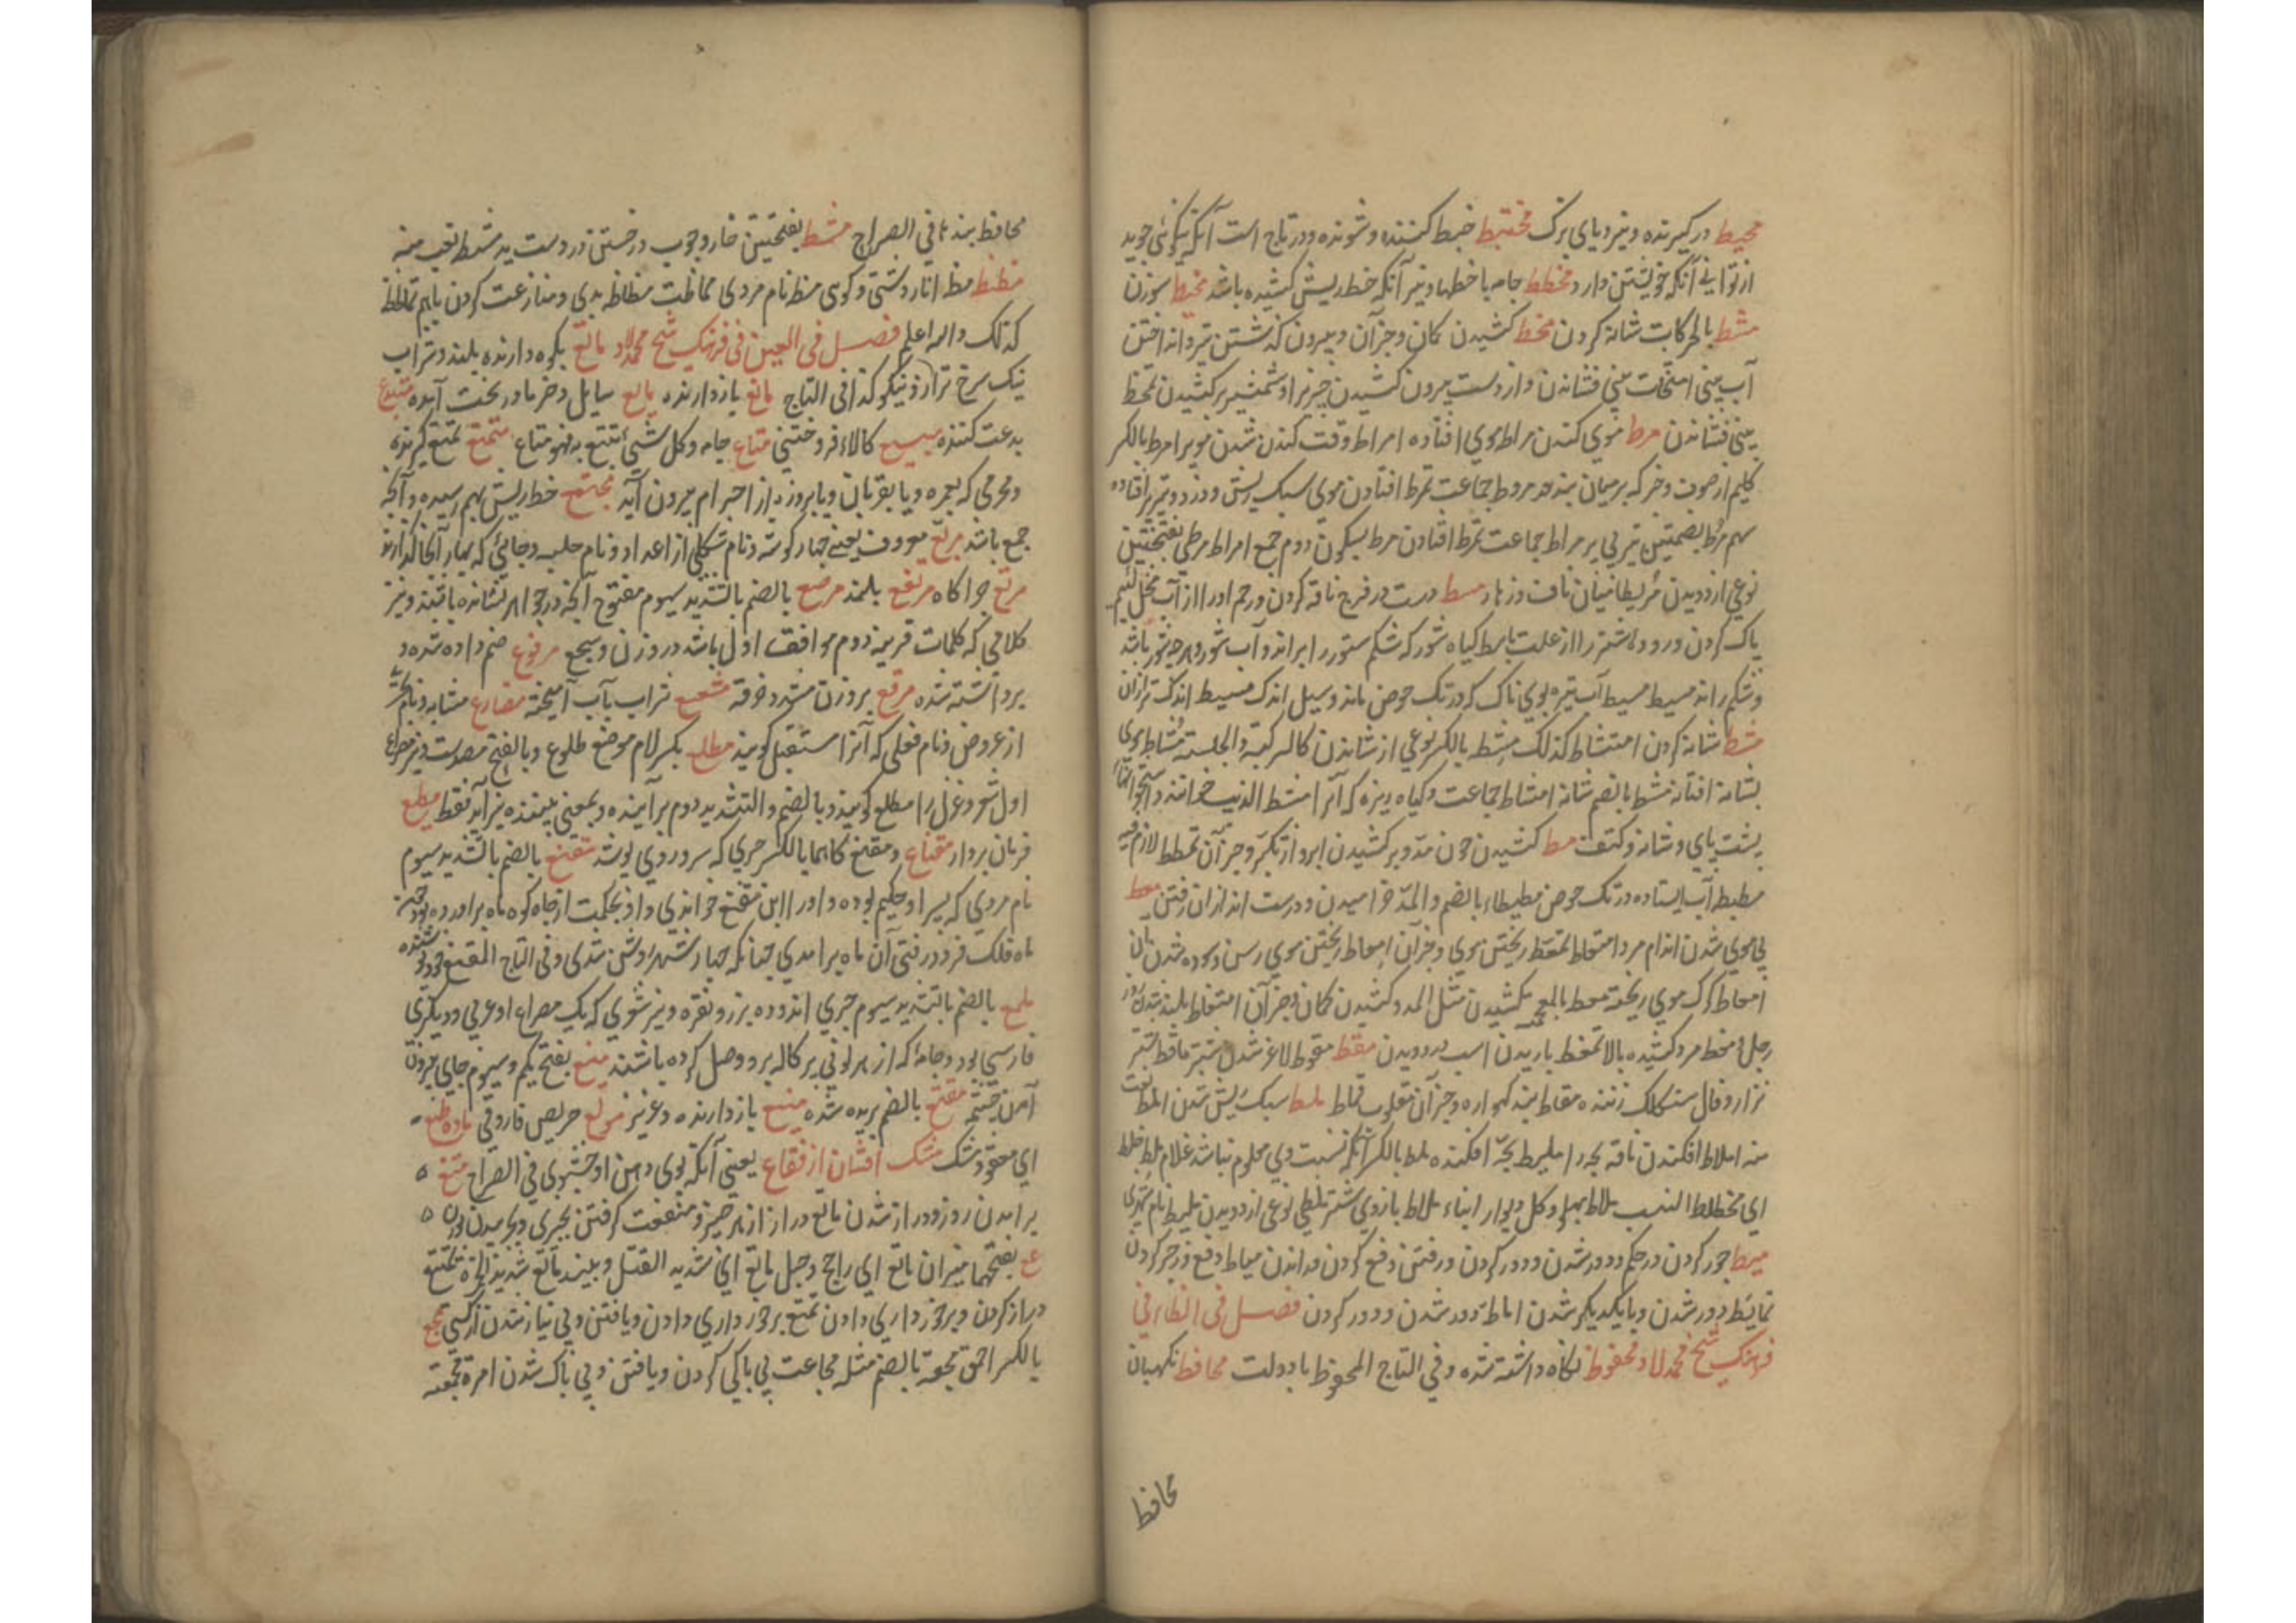 محیط درگیرنده ونیز دریای بزرگ مختبط خبط کننده وشونده ودر تاج است آنکه نیکوئی جوید
ازتو ای آنکه خویشتن دارد مخطط جامه باخطها ونیز آنکه خط ریش کشیده باشد مخیط سوزن
مشط بالحرکات شانه کردن مخط کشیدن کمان وجز آن وبیرون گذشتن تیر وانداختن
آب بینی امتخاط بینی فشاندن واز دست بیرون کشیدن چیزیرا وشمشیر برکشیدن تمخط
بینی فشاندن مرط موی کندن مراط موی افتاده امراط وقت کندن شدن موی مرط بالکسر
گلیم از صوف وخز که بر میان بندند مروط جماعت تمرط افتادن موی سبک ریش ودزد وتیر پر افتاده
سهم مرط بضمتین تیر بی پر مراط جماعت تمرط افتادن مرط بسکون دوم جمع امراط مرطی بفتحتین
نوعی از دویدن مریطا میان ناف وزهار مسط دست در فرج ناقه کردن ورحم او را از آب فحل لئیم
پاک کردن وروده اشتر را از علت ماسط گیاه شور که شکم ستور را براند وآب شور وهر چه شور باشد
وشکم راند مسیط مسیط آب تیره بوی ناک که در تک حوض ماند وسیل اندک مسیط اندک تر ازان
مشط شانه کردن امتشاط کذلک مشط بالکسر نوعی از شاندن کالرکبة والجلسة مشاط موی
بشانه افتاده مشط بالضم شانه امشاط جماعت وگیاه ریزه که آنرا مشط الذئب خوانند
پشت پای وشانه وکتف مط کشیدن چون مد وبرکشیدن ابرو از تکبر وجز آن تمطط لازم فیه
مطیطه آب ایستاده در تک حوض مطیطاء بالضم والمد خرامیدن ودست اندازان رفتن معط
بی موی شدن اندام مرد امتعاط تمعط ریختن موی وجز آن امعاط ریختن موی رسن وسوده شدن آن
امعاط گرگ موی ریخته مغط بالمعجمه کشیدن مثل المد وکشیدن کمان وجز آن امتغاط بلند شدن روز
رجل ممغط مرد کشیده بالا تمغط یازیدن اسب در دویدن مقط مقوط لاغر شدن شتر ماقط شتر
نزار وفال سنگک زننده مقاط بند گهواره وجز آن مقلوب قماط ملط سبک ریش شدن املط نعت
منه املاط افکندن ناقه بچه را ملیط بچه افکنده ملط بالکسر آنکه نسبت وی معلوم نباشد غلام ملط خلط
ای مختلط النسب ملاط پهلو وگل دیوار ابناء ملاط بازوی شتر ملطی نوعی از دویدن ملیط نام شهری
میط جور کردن در حکم ودور شدن ودور کردن ورفتن دفع کردن وراندن میاط دفع وزجر کردن
تمایط دور شدن وبا یکدیگر شدن اماطه دور شدن ودور کردن فصل فی الظاء فی
فرهنگ شیخ محمد لاد محفوظ نگاه داشته شده وفی التاج المحفوظ بادولت محافظ نگهبان
محافظ
محافظ بند ها فی الصراح مشظ بفتحتین خار وچوب درخستن در دست ید مشظ نعت منه
مظظ مظ انار دشتی وکوهی مظ نام مردی مماظت مظاظ بدی ومنازعت کردن باهم تماظظ
کذلک والله اعلم فصل فی العین فی فرهنگ شیخ محمد لاد ماتع بکوه دارنده بلند وشراب
نیک سرخ ترازو نیکو کذا فی التاج مانع بازدارنده مایع سایل وخرما در نخست آمده مبتدع
بدعت کننده مبیع کالاء فروختنی متاع جامه وکل شئ انتفع به فهو متاع متمتع تمتع گیرنده
ومحرمی که بعمره ویا بقربان ویا بروزه از احرام بیرون آید مجتمع خط ریش بهم رسیده وآنچه
جمع باشد مربع معروف یعنی چهار گوشه ونام شکلی از اعداد ونام جلسه وجائی که بهار آنجا گذارند
مرتع چراگاه مرتفع بلند مرصع بالضم بالتشدید سیوم مفتوح آنچه در جواهر نشانده باشند ونیز
کلامی که کلمات قرینه دوم موافق اول باشد در وزن وسجع مرفوع ضم داده شده و
برداشته شده مرقع بروزن مشدد خرقه مشعشع شراب بآب آمیخته مضارع مشابه ونام بحر
از عروض ونام فعلی که آنرا مستقبل گویند مطلع بکسر لام موضع طلوع وبالفتح مصدرست ونیز مصراع
اول شعر وغزل را مطلع گویند وبالضم والتشدید دوم برآینده وبمعنی بیننده نیز آید فقط مطیع
فرمان بردار مقناع ومقنع کلاهما بالکسر چیزی که سر وروی پوشد مقنع بالضم بالتشدید سیوم
نام مردی که پسر او حکیم بوده واو را ابن مقنع خواندی واو بحکمت از چاه کوه ماه برآورده بود چون
ماه فلک فرو رفتی آن ماه برآمدی چنانکه چهار شهر روشن شدی وفی التاج المقنع خود پوشنده
ملمع بالضم بالتشدید سیوم چیزی اندوده بزر ونقره ونیز شعری که یک مصراع او عربی ودیگری
فارسی بود وجامهٔ که از هر لونی پرکاله برو وصل کرده باشند منبع بفتح یکم وسیوم جای بیرون
آمدن چشمه مقنع بالضم بریده شده منیع بازدارنده وعزیز مولع حریص فاروقی ماده طبع
ای معقود مشک مشک افشان از فقاع یعنی آنکه بوی دهن او خوشبوی فی الصراح متع
برآمدن روز ودراز شدن ماتع دراز از هر چیز ومنفعت گرفتن بچیزی
ع بفتحهما میزان ماتع ای راجح وحبل ماتع ای شدید الفتل ونبیذ ماتع شدید الحمرة تمتیع
دراز کردن وبرخورداری دادن تمتع برخورداری دادن ویافتن وبی نیاز شدن از کسی مجع
بالکسر احمق مجعه بالضم مثله مجاعت بی باکی کردن ویافتن وبی باک شدن امرءة مجعة